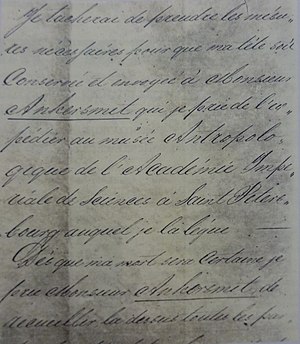 Je tacherai de prendre les mesu-
res nécessaires pour que ma tête soit
Conservé et envoyée à Monsieur
Ankersmit qui je prie de l'ex-
pédier au musée Antropolo-
gique de l'Académie Impé-
riale de Sciences à Saint Péters-
bourg auquel je la lègue. —
Dès que ma mort sera certaine je
prie Monsieur Ankersmit de
accueillir la dessus toutes les